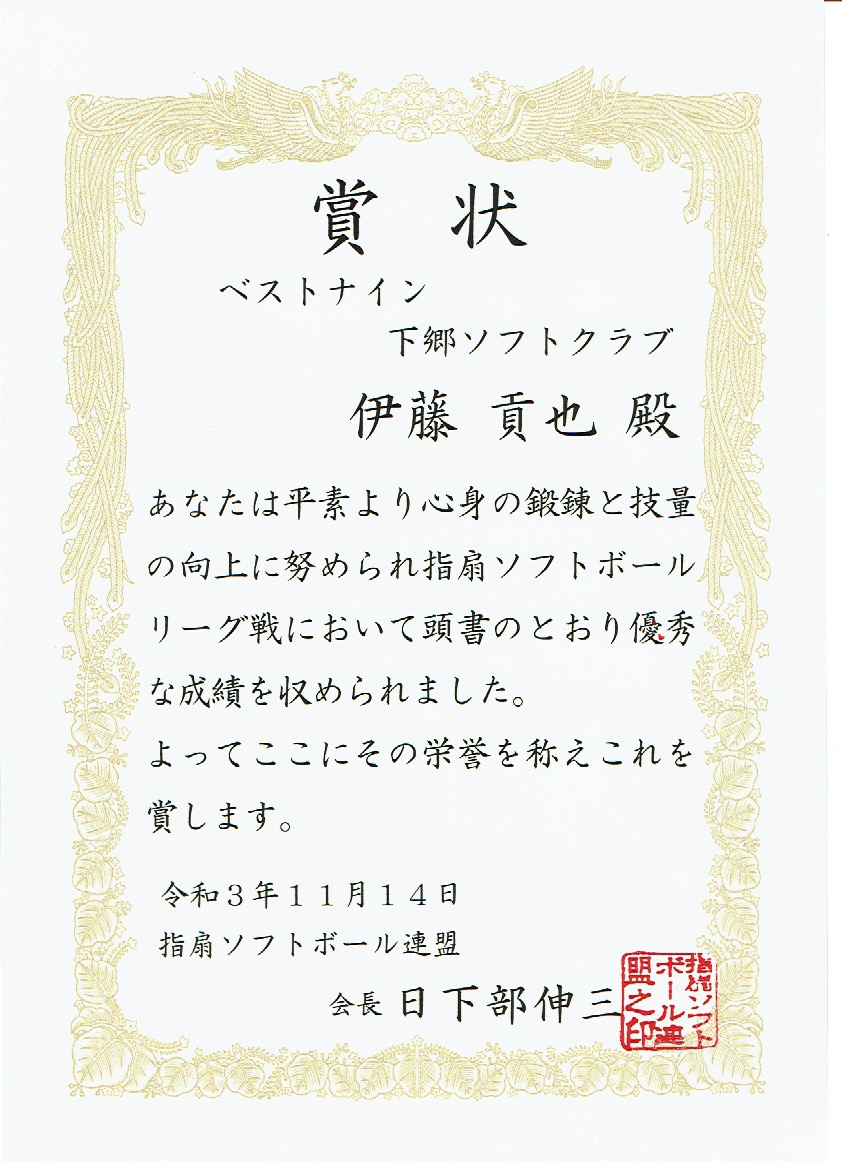 賞 状
ベストナイン
下郷ソフトクラブ
伊藤 貢也 殿
あなたは平素より心身の鍛錬と技量
の向上に努められ指扇ソフトボール
リーグ戦において頭書のとおり優秀
な成績を収められました。
よってここにその栄誉を称えこれを
賞します。
令和３年１１月１４日
指扇ソフトボール連盟
会長 日下部伸三
指扇ソフト
ボール連
盟之印